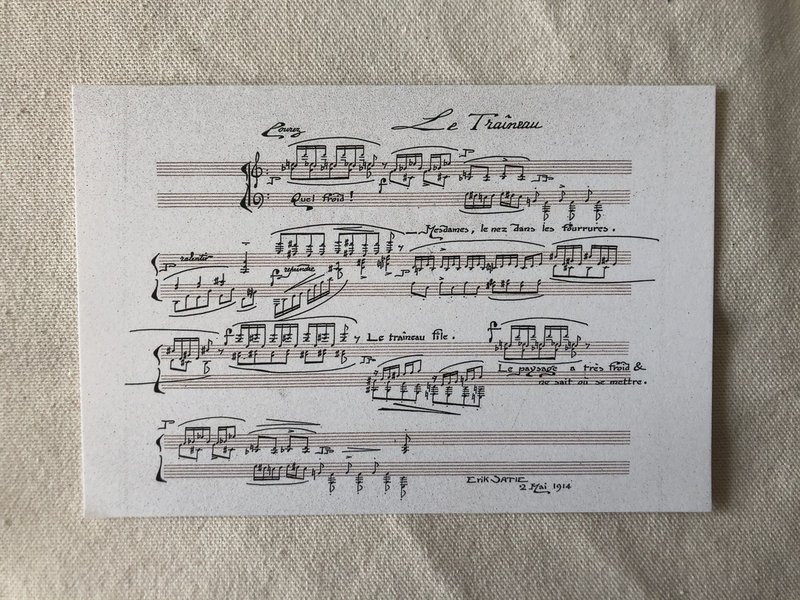 Le Traîneau
Courez
Quel froid !
Mesdames, le nez dans les fourrures.
ralentir
reprendre
Le traîneau file.
Le paysage a très froid &
ne sait où se mettre.
Erik SATIE
2 Mai 1914